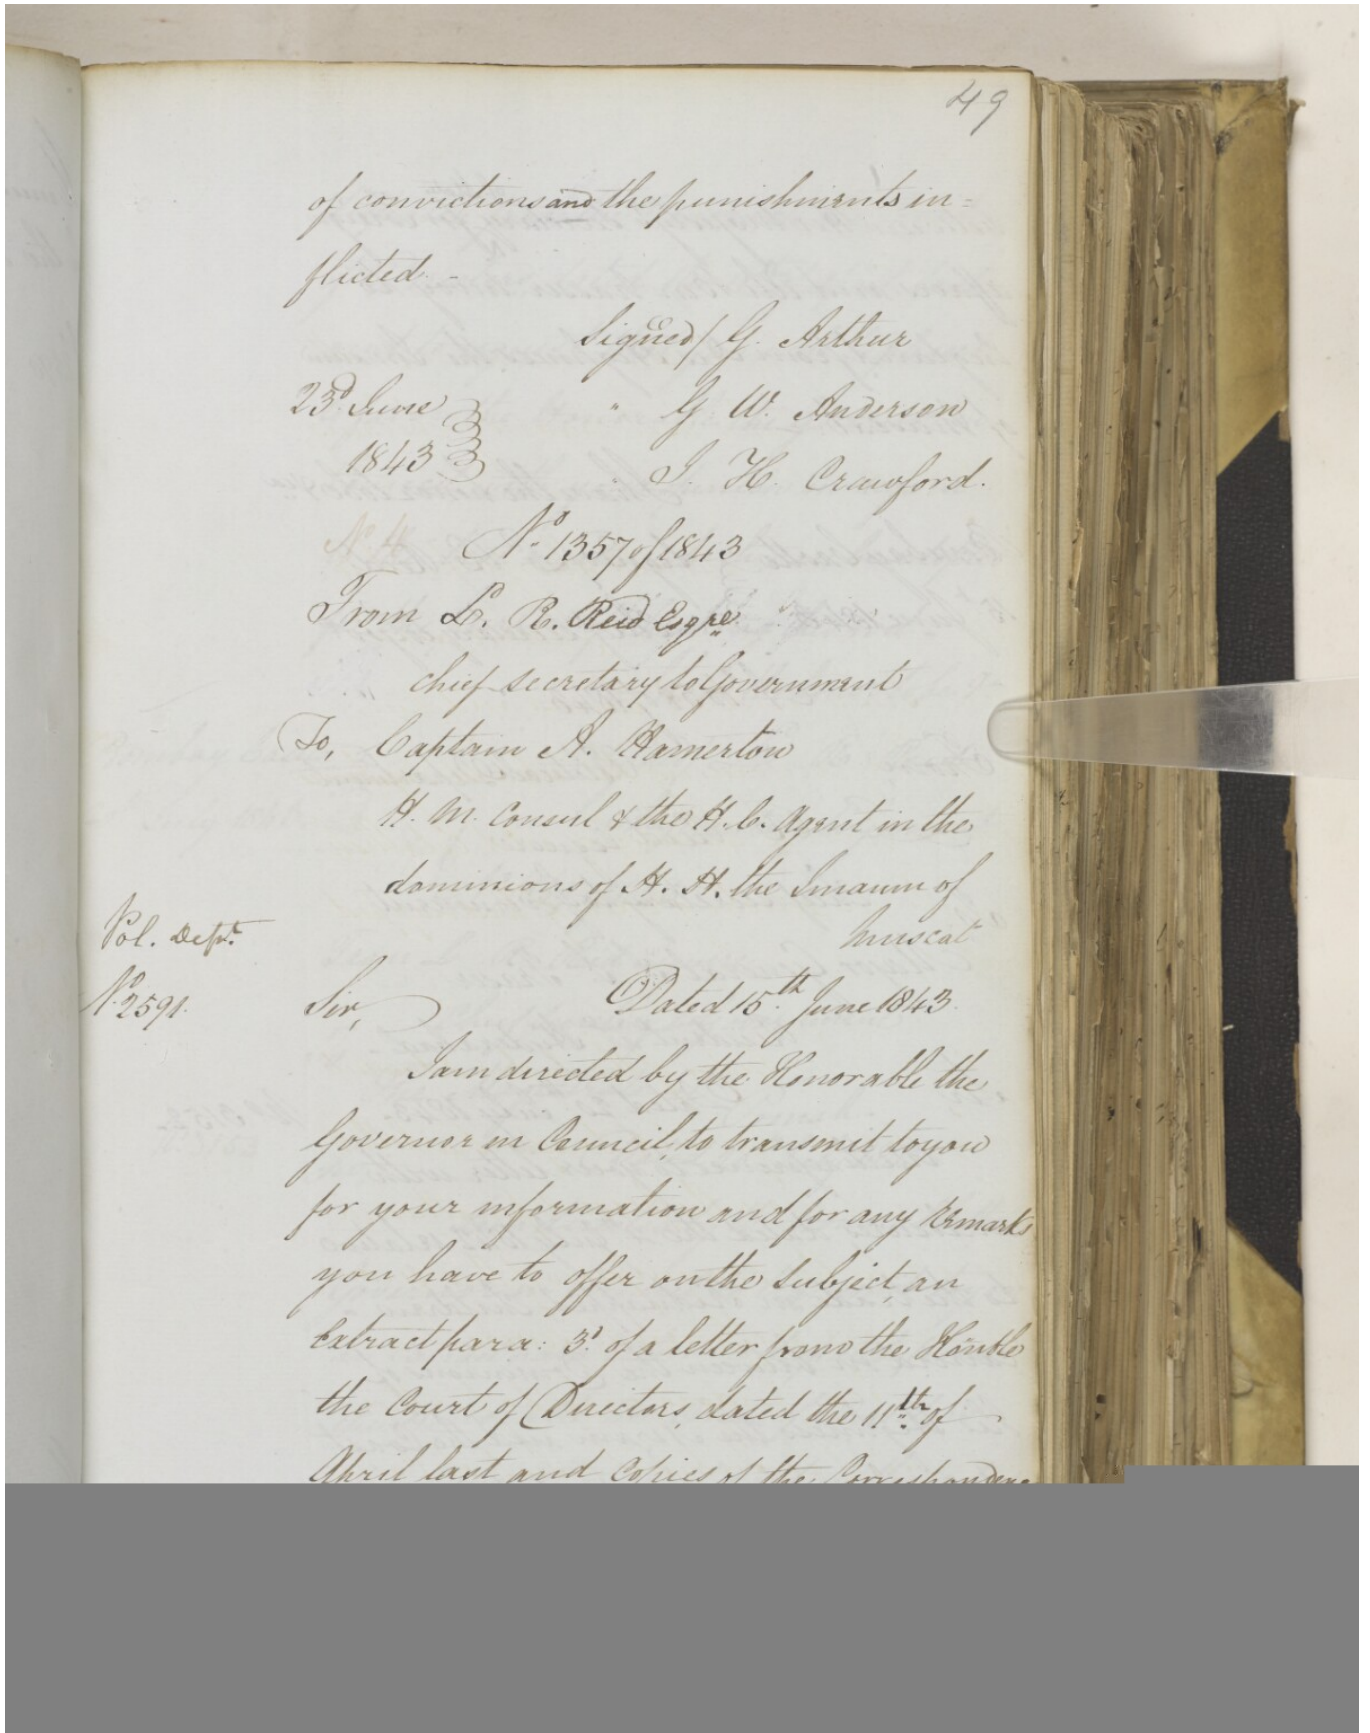 49
of convictions and the punishments in=
flicted. -
Signed/ G. Arthur
23d. June " G W. Anderson
1843 " J. H. Crawford.
No. 4 No. 1357 of 1843
From L. R. Reid Esqre.
chief secretary to Government
To, Captain A. Hamerton
H. M. Consul & the H. C. Agent in the
dominions of H. H. the Imaum of
Pol. Dept. Muscat
No. 2591. Sir, Dated 15th. June 1843.
I am directed by the Honorable the
Governor in Council, to transmit to you
for your information and for any remarks
you have to offer on the subject, an
Extract para: 3d. of a letter from the Honble
the Court of Directors, dated the 11th. of
April last and Copies of the Correspondence